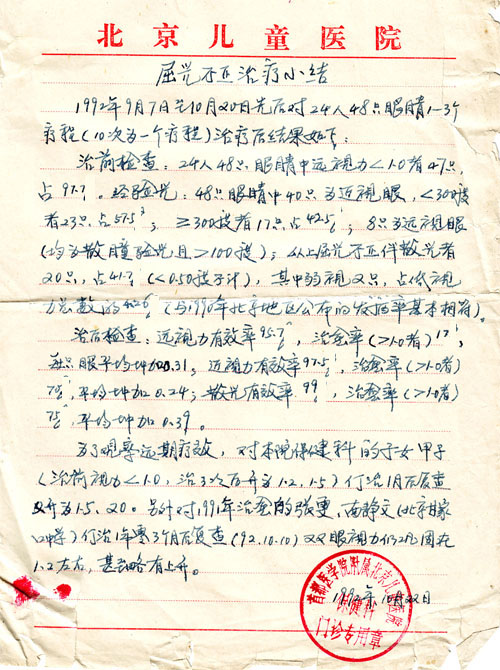 北京儿童医院
屈光不正治疗小结
1992年9月7日先10月20日先后对24人48只眼睛1-3个
疗程(10次为一个疗程)治疗后结果如下:
治前检查:24人48只眼睛中远视力<1.0者47只,
占97.?。经验光:48只眼睛中40只为近视眼,<300度
者23只占57.5%;≥300度者17只占42.5%;8只为远视眼
(均为散瞳验光且>100度);从上屈光不正伴散光者
20只,占41.7%(<0.50度不计),其中弱视2只,占低视
力总数的42.6%(与1990年北京地区公布的发病率基本相符)。
治后检查:远视力有效率95.7%,治愈率(>1.0者)
每只眼平均增加0.31;近视力有效率97.5%,治愈率(>1.0者)
75%,平均增加0.24;散光有效率99%,治愈率(>1.0者)
75%,平均增加0.39。
为了观察远期疗效,对本院保健科的子女甲子
(治前视力<1.0,治3次后升为1.2、1.5)停治1月后复查
又升为1.5、2.0。另外对1991年治愈的张雯、南静文(北京
中学)停治1年零3个月后复查(92.10.10)双眼视力仍巩固在
1.2左右,甚或略有上升。
1992年10月22日
首都医学院附属北京儿童医院
保健科
门诊专用章